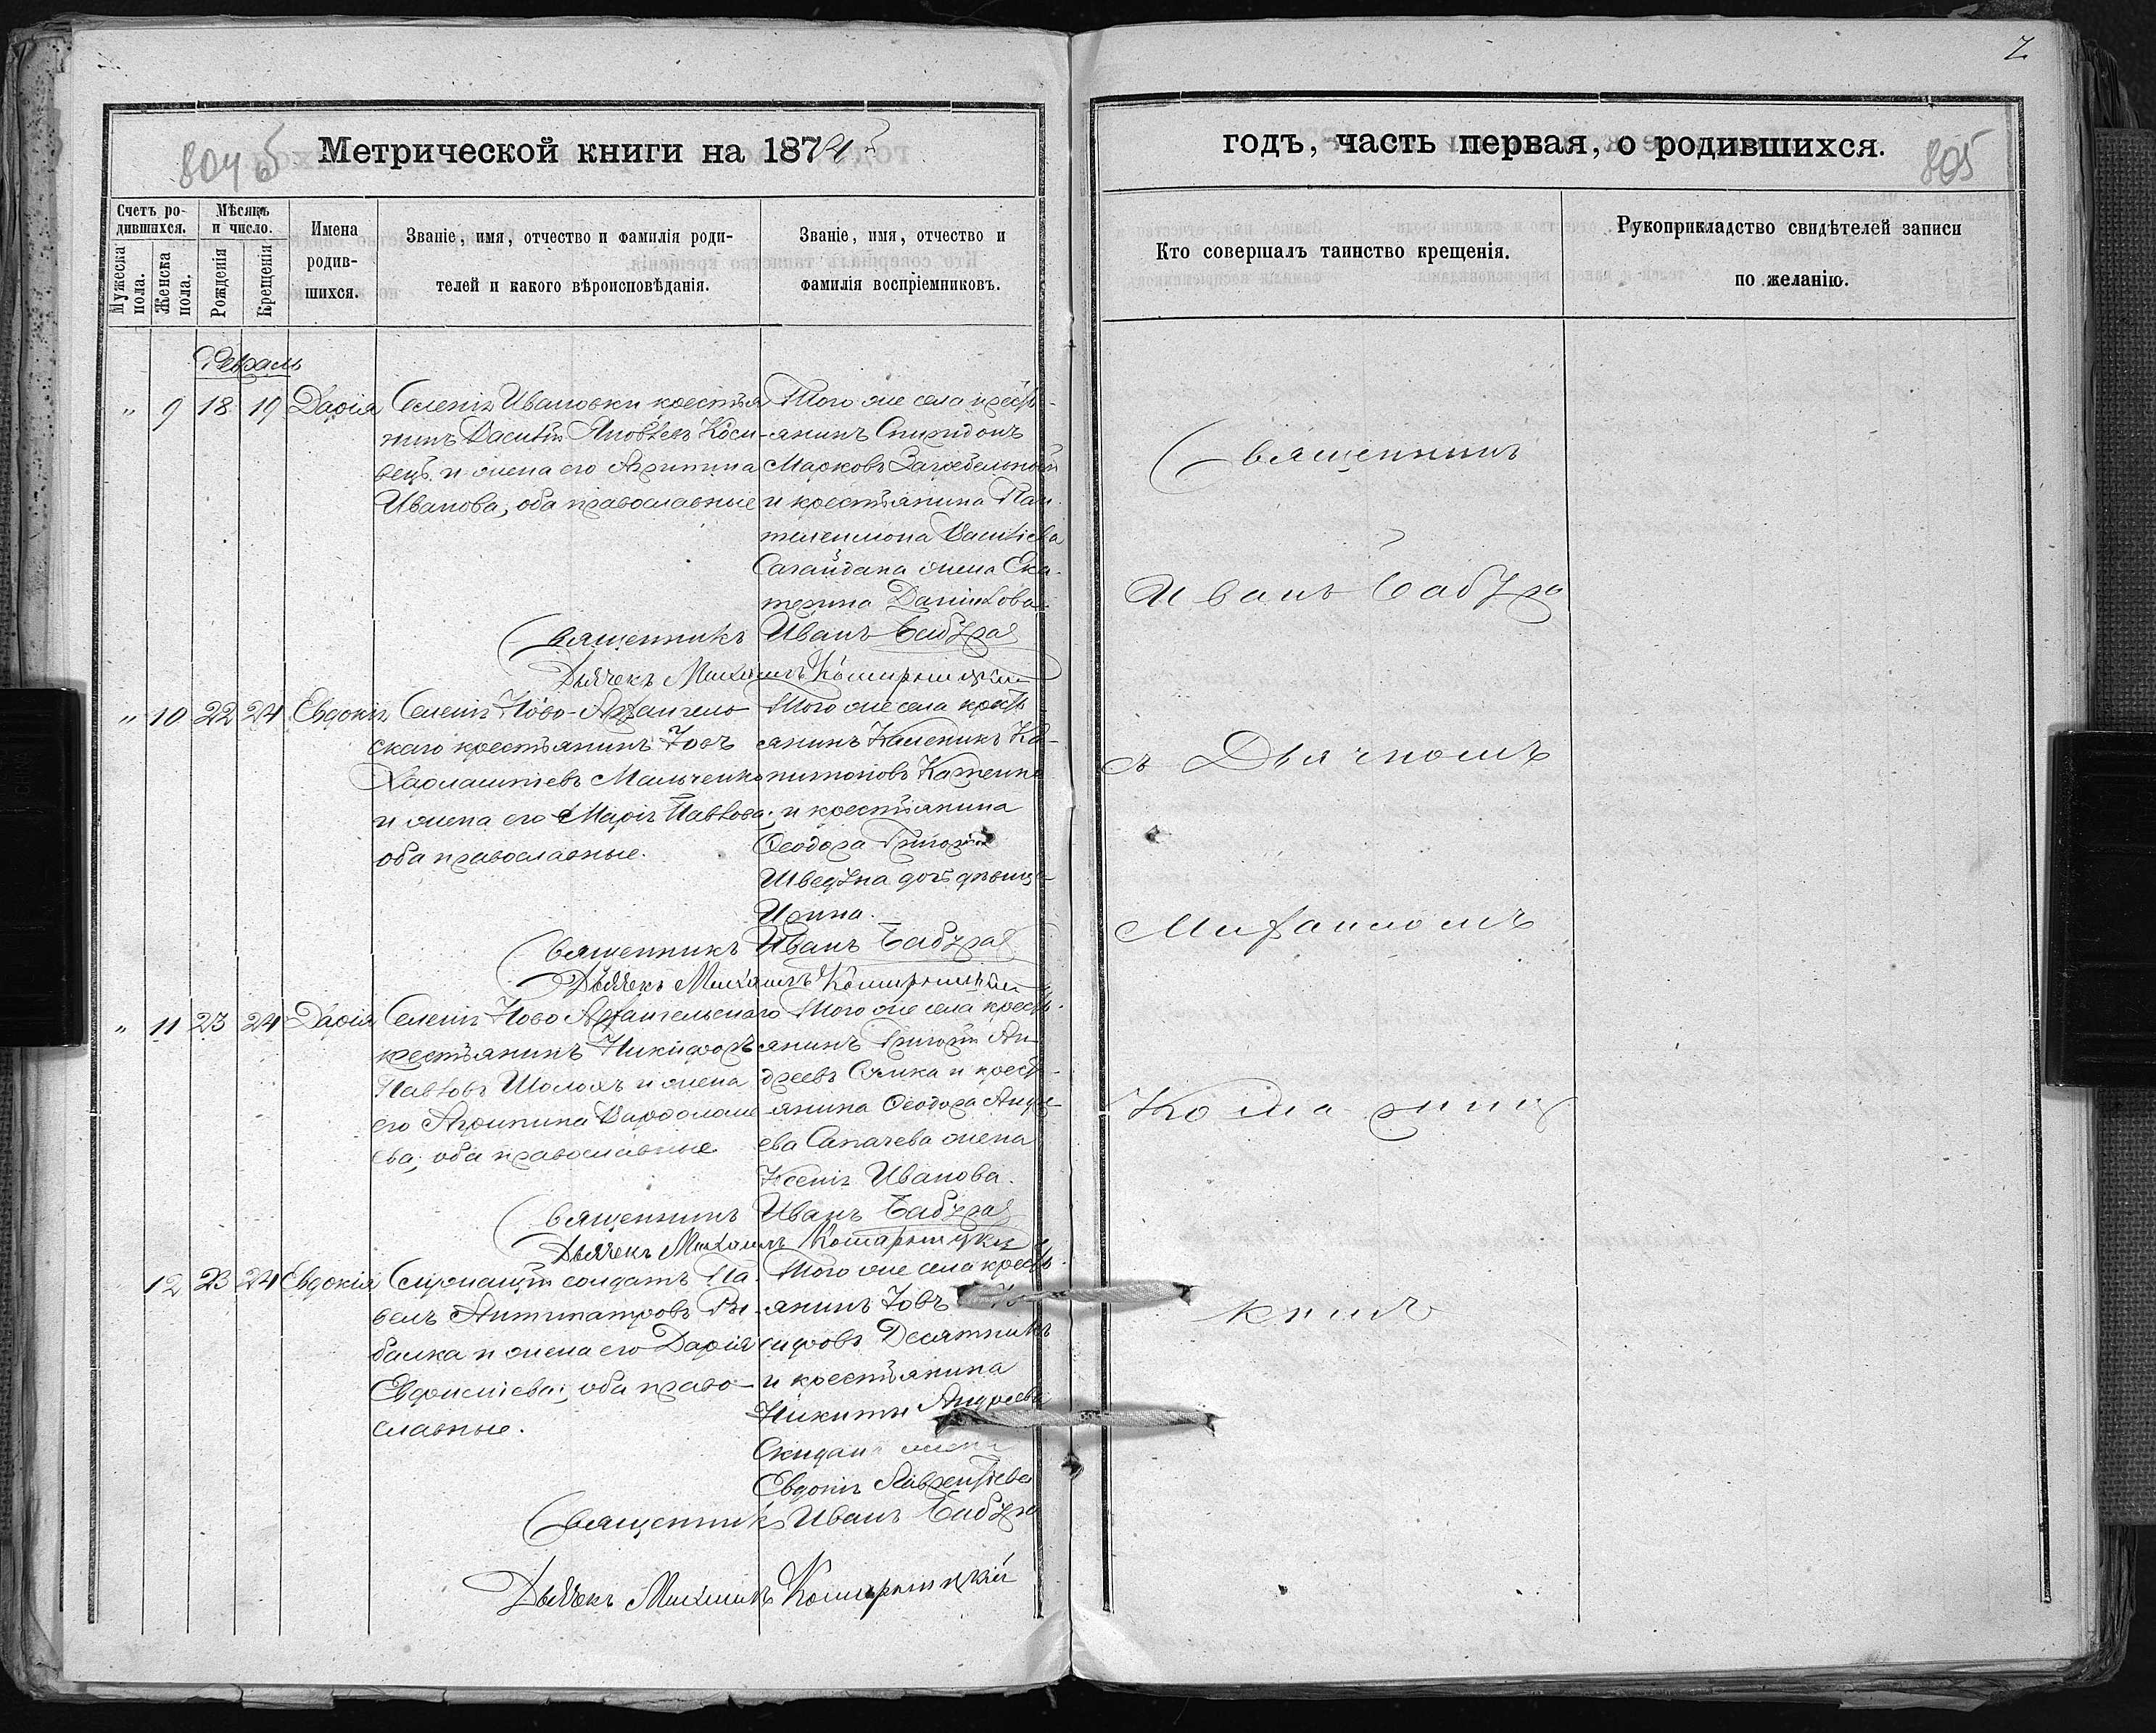 7
8045
Метрической книги на 1874
годъ, часть первая, о родившихся.
805
Счетъ ро-
дившихся.
Мужеска пола.
Женска пола.
Мѣсяцъ
и число.
Рожденія
Крещенія
Имена
родив-
шихся.
Званіе, имя, отчество и фамилія роди-
телей и какого вѣроисповѣданія.
Званіе, имя, отчество и
фамилія воспріемниковъ.
Кто совершалъ таинство крещенія.
Рукоприкладство свидѣтелей записи
по желанію.
Февраль
" 9 18 19 Дарія
Селенія Ивановки крестья
нинъ Василій Яковлевъ Коси-
вецъ и жена его Агрипина
Иванова, оба православные
Того же села кресть-
янинъ Спиридонъ
Марковъ Загребельный
и крестьянина Пан-
телеимона Васильева
Сагайдака жена Ека-
терина Данилова
Священникъ Иванъ Бабура
Дьячекъ Михаилъ Комарницкій
" 10 22 24 Евдокія
Селенія Ново-Архангель
скаго крестьянинъ Іовъ
Харлампіевъ Мальченко
и жена его Марія Павлова,
оба православные.
Того же села кресть
янинъ Калиникъ Ка-
питоновъ
и крестьянина
Ѳеодора Григорьева
Шведуна дочь дѣвица
Ирина.
Священникъ Иванъ Бабура
Дьячекъ Михаилъ Комарницкій
" 11 23 24 Дарія
Селенія Ново Архангельскаго
крестьянинъ Никифоръ
Павловъ Шолохъ и жена
его Агрипина Варѳоломе
ева, оба православные
Того же села кресть-
янинъ Григорій Ан-
дреевъ и крест-
янина Ѳеодора Андре-
ева жена
Ксенія Иванова.
Священникъ Иванъ Бабура
Дьячекъ Михаилъ Комарницкій
12 23 24 Евдокія
Служащій солдатъ Па-
велъ Антипатровъ Ры-
балка и жена его Дарія
Евфиміева, оба право-
славные.
Того же села кресть-
янинъ Іовъ
сифовъ Десятникъ
и крестьянина
Никиты Андреева
Скидана жена
Евдокія Лаврентіева
Священникъ Иванъ Бабура
Дьячекъ Михаилъ Комарницкій
Священникъ
Иванъ Бабура
съ Дьячкомъ
Михаиломъ
Комарниц
кимъ